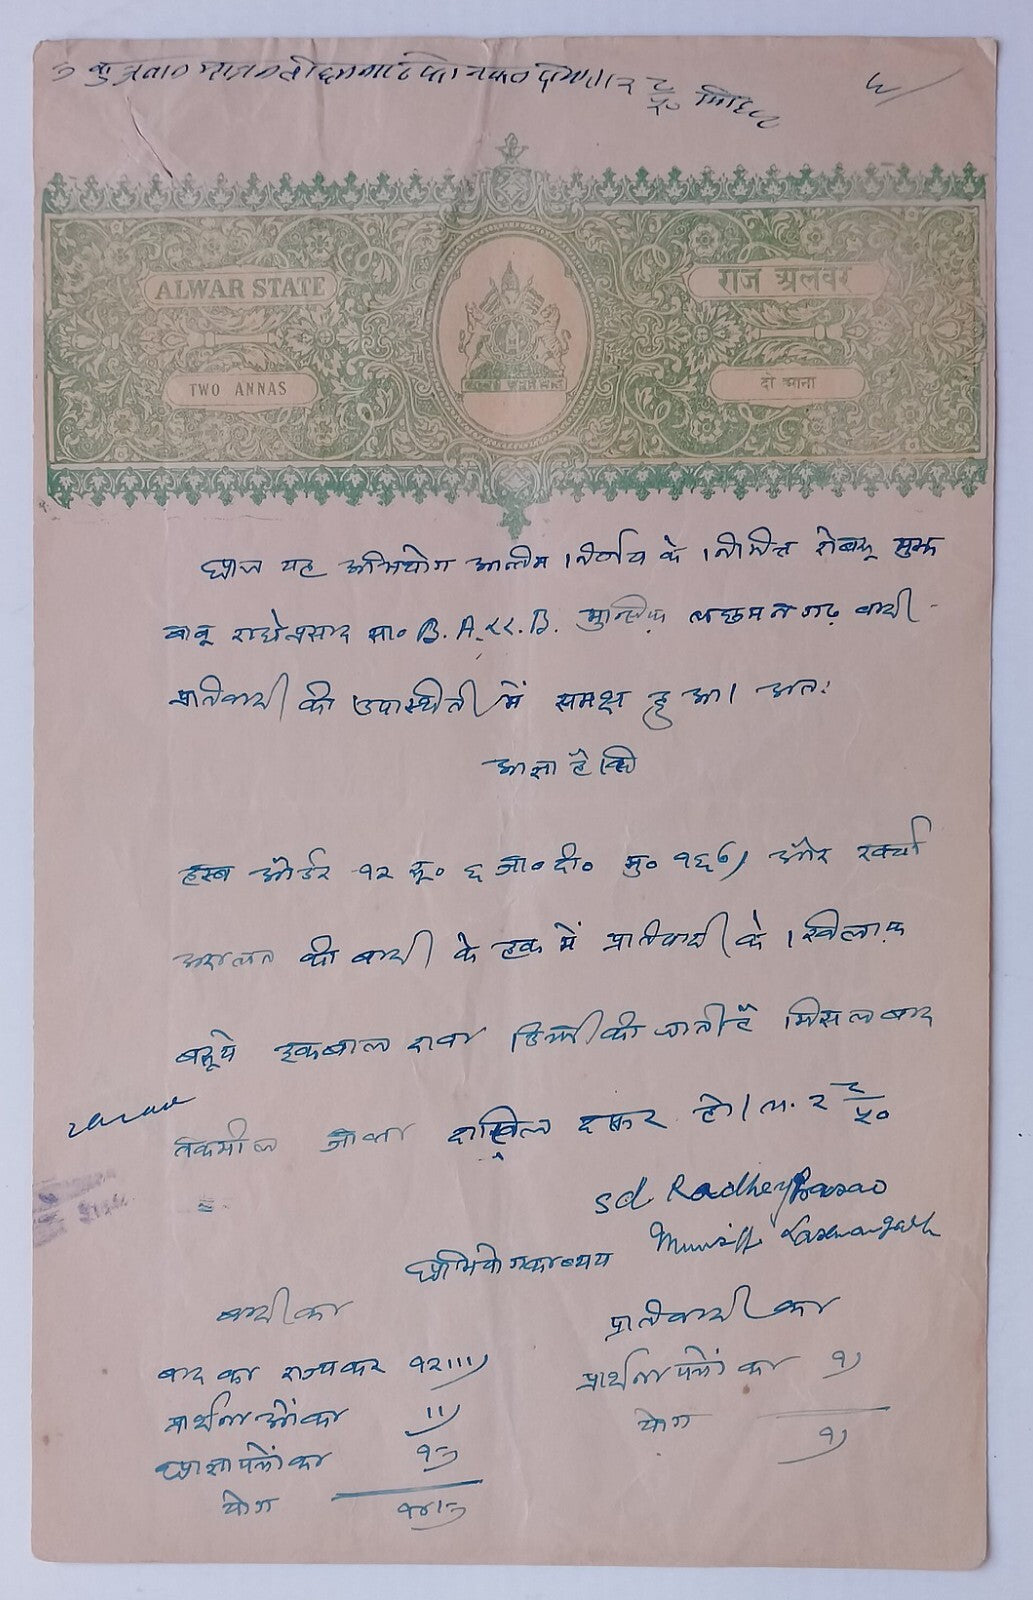 ALWAR STATE
राज अलवर
TWO ANNAS
दो आना
आज यह अभियोग अन्तिम निर्णय के निमित्त रोबरू मुझ
बाबू राधेप्रसाद सा० B. A. LL. B. मुन्सिफ़ लछमनगढ़ वादी
प्रतिवादी की उपास्थिती में समक्ष हुआ। अतः
आज्ञा है कि
हस्ब ऑर्डर १२ रू० ६ जा० दी० मु० १६७) और खर्चा
अदालत की वादी के हक में प्रतिवादी के खिलाफ़
बरूये इकबाल दावा डिग्री की जाती है मिसल बाद
तकमील जाब्ता दाखिल दफ्तर हो। ता. २ ८/५०
Sd. Radhey Prasad
Munsiff Laxmangarh
अभियोग का व्यय
वादी का
प्रतिवादी का
वाद का राज्यकर १२॥।)
प्रार्थना पत्रों का १)
प्रार्थनाओं का ॥)
योग १)
आज्ञा पत्रों का
योग